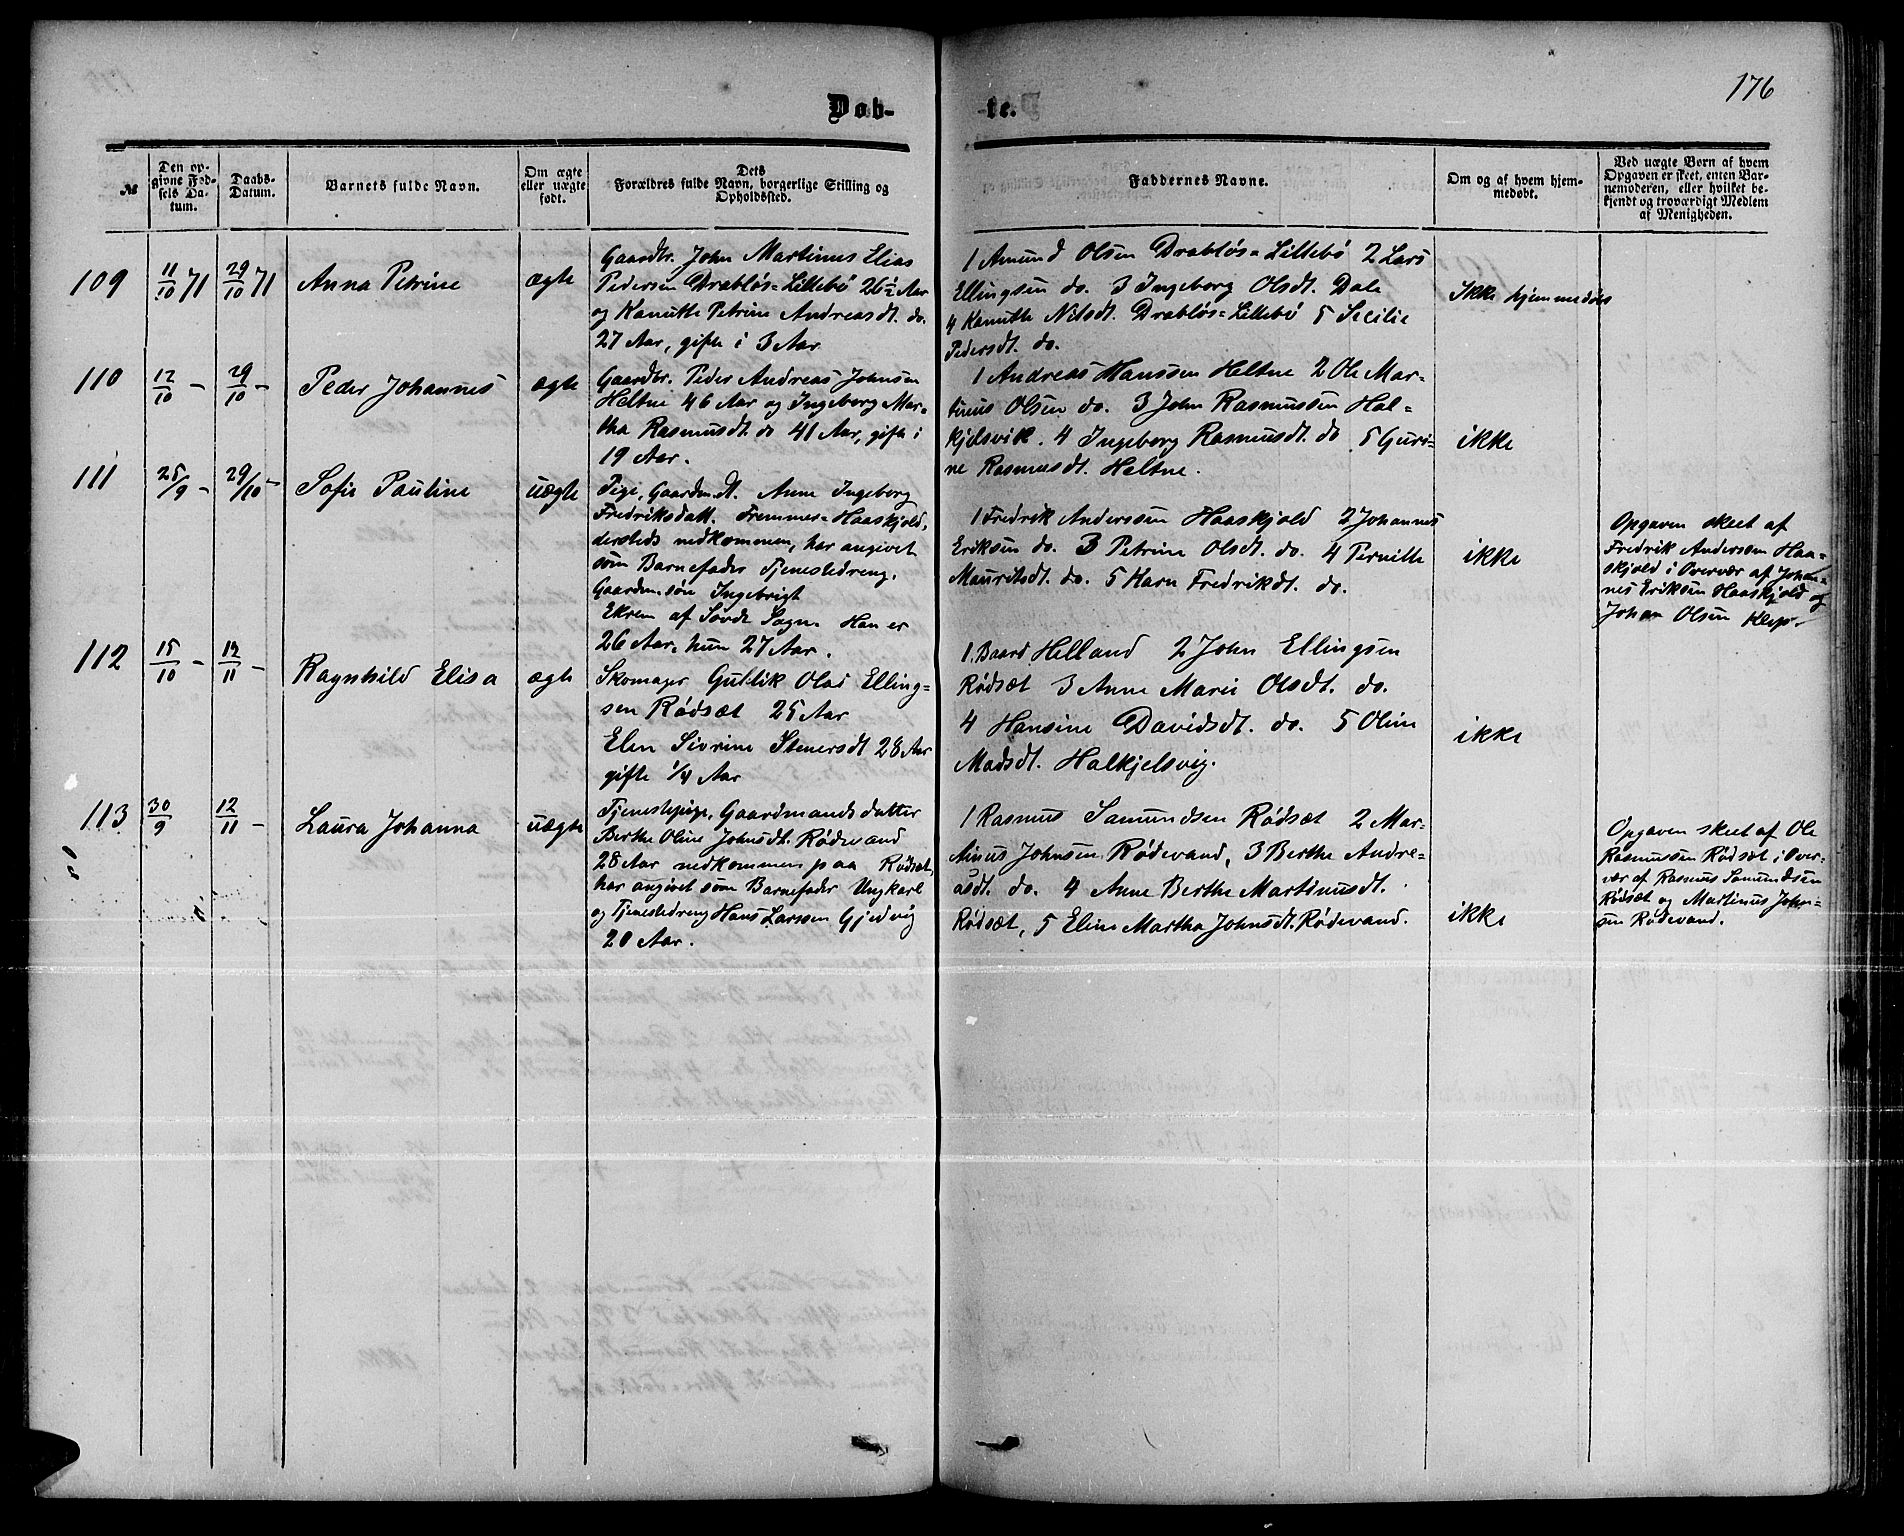 176
Døb-
te.
№
Den op-
givne Fød-
sels Da-
tum.
Daabs-
Datum.
Barnets fulde Navn.
Om ægte
eller uægte
født.
Dets
Forældres fulde Navn, borgerlige Stilling og
Opholdssted.
Faddernes Navne.
Om og af hvem hjem-
medøbt.
Ved uægte Børn af hvem
Opgaven er skeet, enten Bar-
nemoderen, eller hvilket be-
kjendt og troværdigt Medlem
af Menigheden.
109
11/10 71
29/10 71
Anna Petrine
ægte
Gaardbr. John Martinus Elias
Pedersen Drabløs=Lillebø 26½ Aar
og Kanutte Petrine Andreasdt. do.
27 Aar, gifte i 3 Aar
1 Amund Olsen Drabløs=Lillebø 2 Lars
Ellingsen do. 3 Ingeborg Olsdt. Dale
4 Kanutte Nilsdt. Drabløs=Lillebø 5 Secilie
Pedersdt. do.
Ikke hjemmedøbt
110
12/10 -
29/10 -
Peder Johannes
ægte
Gaardbr. Peder Andreas Johnsen
Heltne 46 Aar og Ingeborg Mar-
tha Rasmusdt. do 41 Aar, gifte i
19 Aar.
1 Andreas Hanssen Heltne 2 Ole Mar-
tinus Olsen do. 3 John Rasmussen Hal=
kjelsvik. 4 Ingeborg Rasmusdt. do 5 Guri=
ne Rasmusdt. Heltne.
ikke
111
25/9 -
29/10 -
Sofie Pauline
uægte
Pige, Gaardm.dt. Anne Ingeborg
Fredriksdatt. Fremmer=Haaskjold,
dersteds nedkommen, har angivet
som Barnefader Tjenestedreng,
Gaardm.søn Ingebrigt
Ekrem af Søvde Sogn. Han er
26 Aar, hun 27 Aar.
1 Fredrik Anderssen Haaskjold 2 Johannes
Eriksen do. 3 Petrine Olsdt. do. 4 Pernille
Mauritsdt. do. 5 Karn Fredrikdt. do.
ikke
Opgaven skeet af
Fredrik Andersen Haa=
skjold i Overvær af Johan=
nes Eriksen Haaskjold og
Johan Olsen Klep.
112
15/10 -
12/11 -
Ragnhild Elisa
ægte
Skomager Gullik Olai Elling=
sen Rødsæt 25 Aar
Elen Sivrine Stenersdt 28 Aar
gifte 1/4 Aar
1. Baard Helland 2 John Ellingsen
Rødsæt 3 Anne Marie Olsdt. do.
4 Hansine Davidsdt. do. 5 Oline
Madsdt. Halkjelsvig.
ikke
113
30/9
12/11 -
Laura Johanna
uægte
Tjenestepige, Gaardmandsdatter
Berthe Oline Johnsdt. Rødevand
28 Aar nedkommen paa Rødsæt,
har angivet som Barnefader Ungkarl
og Tjenestedreng Hans Larssen Gjedvig
20 Aar.
1 Rasmus Samundsen Rødsæt 2 Mar-
tinus Johnsen Rødevand, 3 Berthe Andre=
asdt. do. 4 Anne Berthe Martinusdt.
Rødsæt, 5 Eline Martha Johnsdt. Rødevand.
ikke
Opgaven skeet af Ole
Rasmussen Rødsæt i Over-
vær af Rasmus Samundsen
Rødsæt og Martinus John=
sen Rødevand.